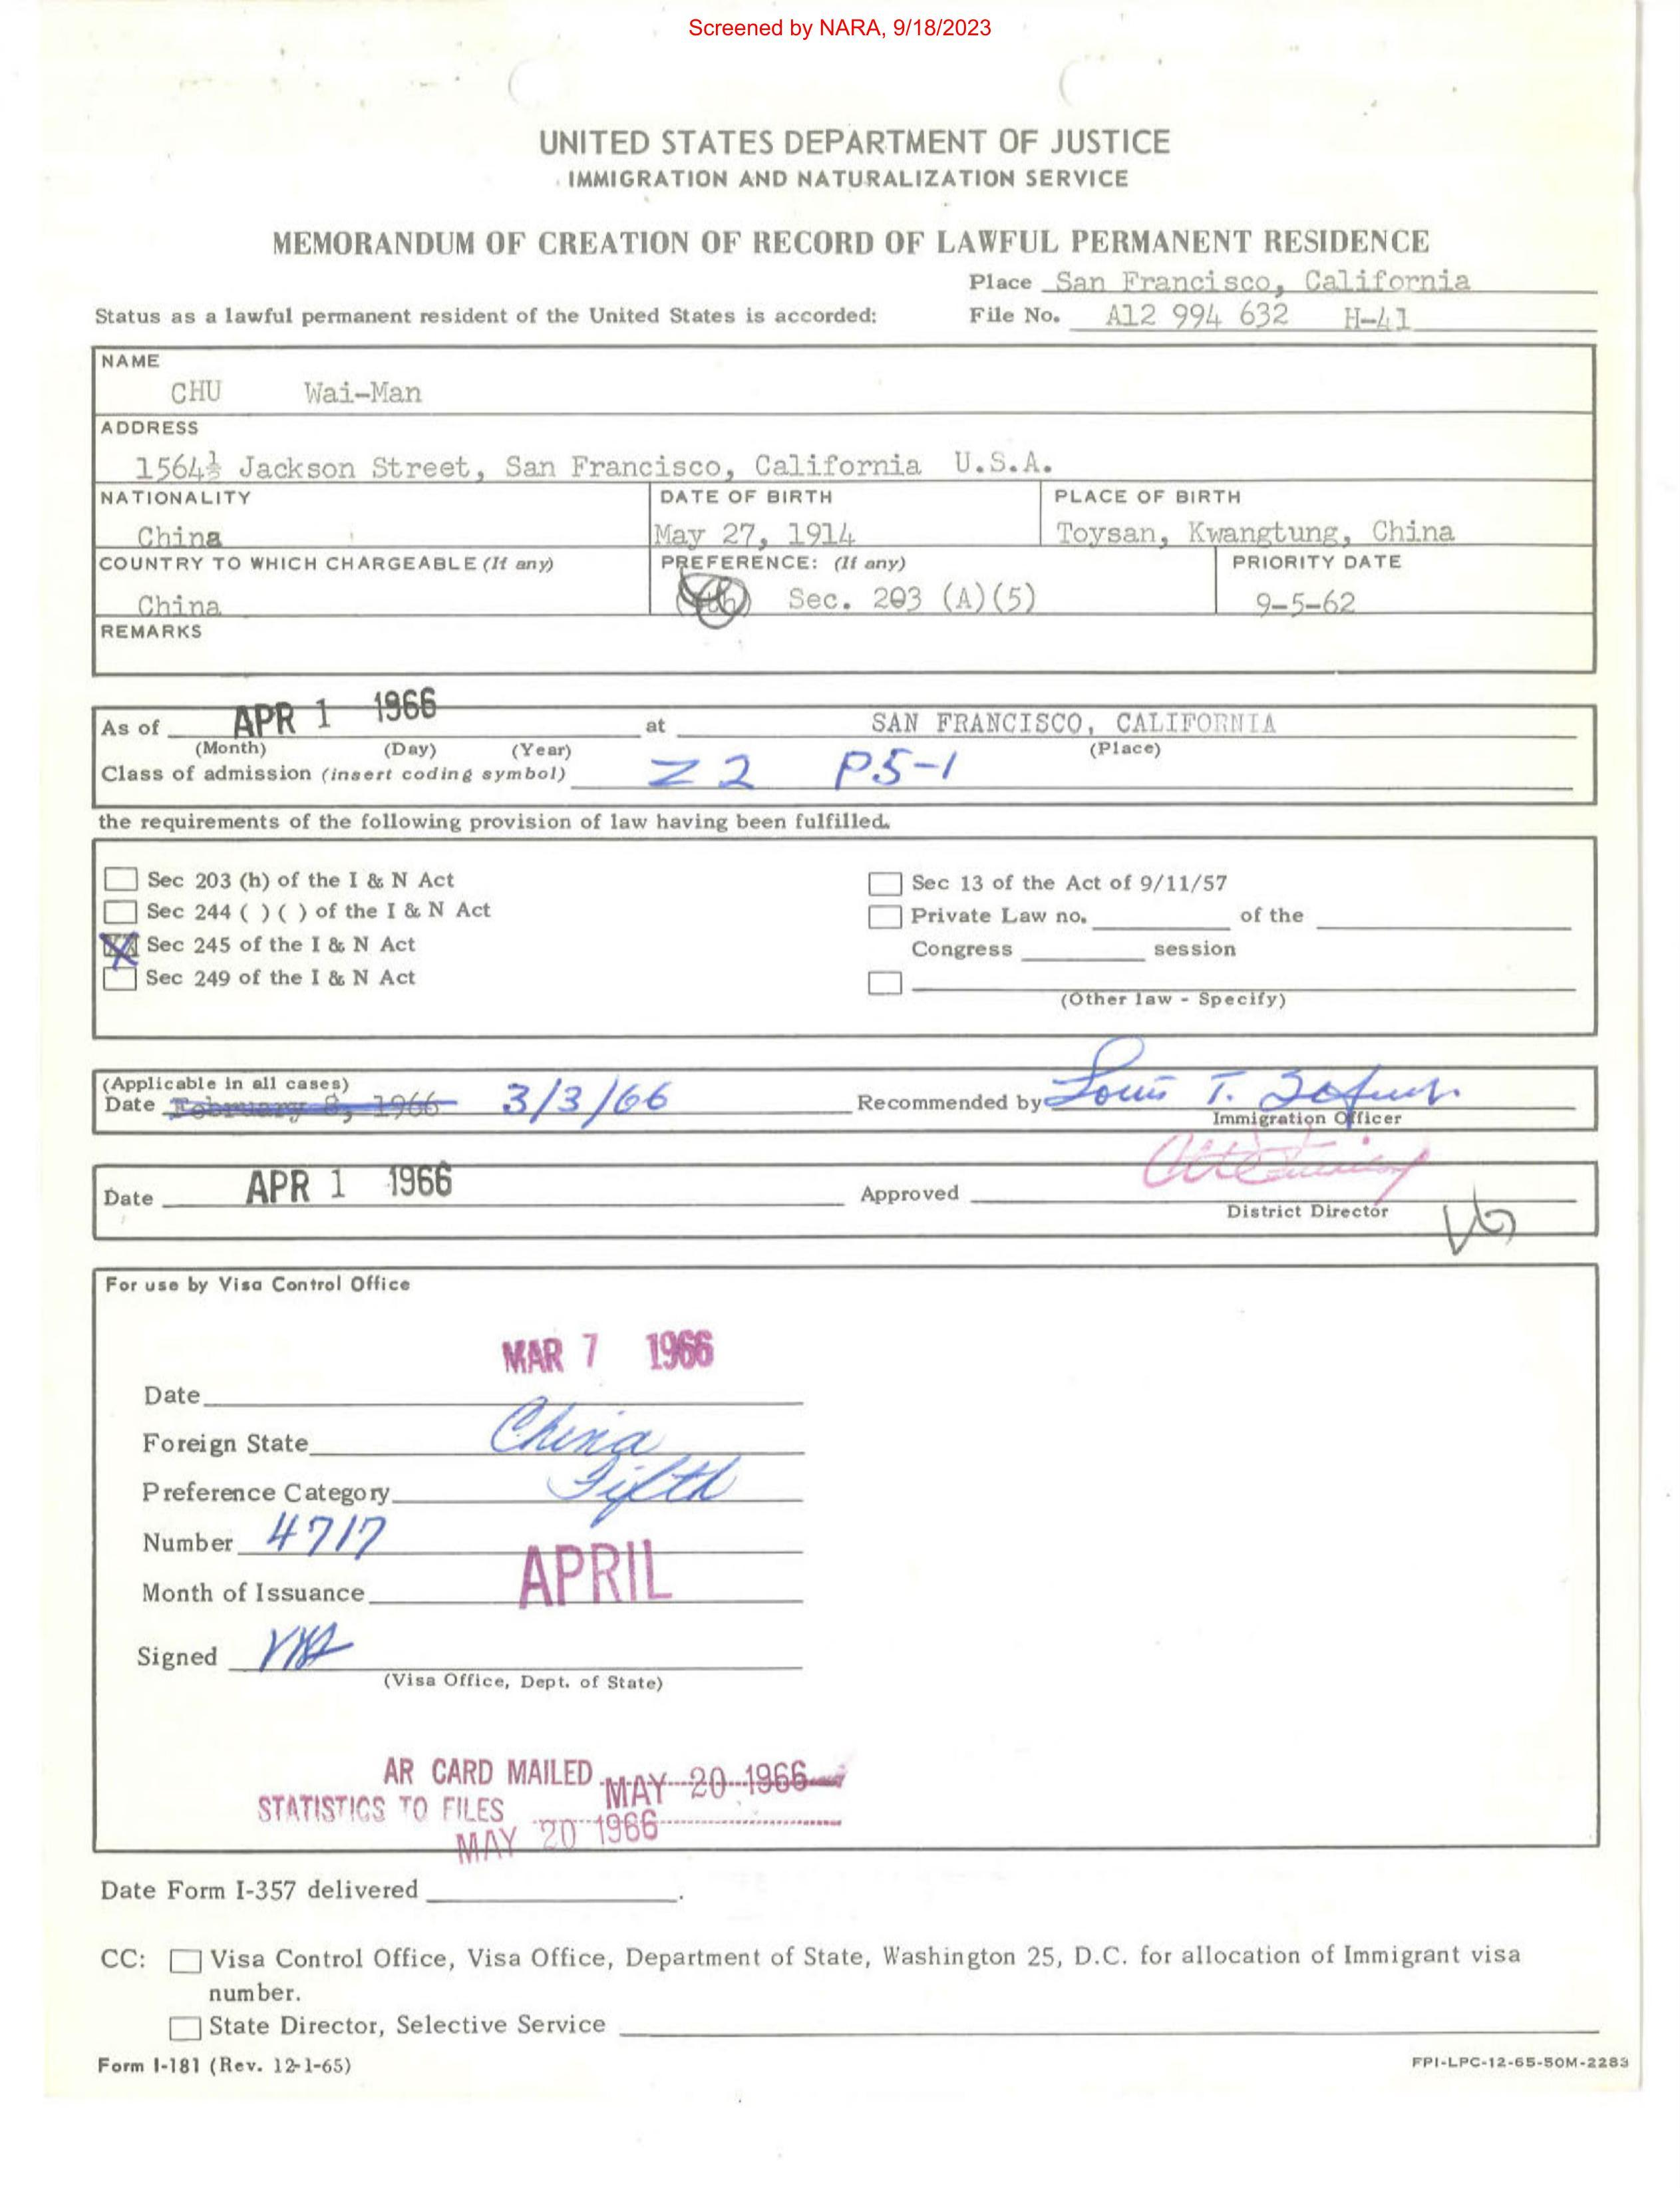 Screened by NARA, 9/18/2023
UNITED STATES DEPARTMENT OF JUSTICE
IMMIGRATION AND NATURALIZATION SERVICE
MEMORANDUM OF CREATION OF RECORD OF LAWFUL PERMANENT RESIDENCE
Place San Francisco, California
Status as a lawful permanent resident of the United States is accorded: File No. A12 994 632 H-41
NAME
CHU Wai-Man
ADDRESS
1564½ Jackson Street, San Francisco, California U.S.A.
NATIONALITY DATE OF BIRTH PLACE OF BIRTH
China May 27, 1914 Toysan, Kwangtung, China
COUNTRY TO WHICH CHARGEABLE (If any) PREFERENCE: (If any) PRIORITY DATE
China Sec. 203 (A)(5) 9-5-62
REMARKS
As of APR 1 1966 at SAN FRANCISCO, CALIFORNIA
(Month) (Day) (Year) (Place)
Class of admission (insert coding symbol) Z2 P5-1
the requirements of the following provision of law having been fulfilled.
Sec 203 (h) of the I & N Act Sec 13 of the Act of 9/11/57
Sec 244 ( ) ( ) of the I & N Act Private Law no. of the
X Sec 245 of the I & N Act Congress session
Sec 249 of the I & N Act
(Other law - Specify)
(Applicable in all cases)
Date February 8, 1966 3/3/66 Recommended by Louis T.
Immigration Officer
Date APR 1 1966 Approved
District Director
For use by Visa Control Office
MAR 7 1966
Date
Foreign State China
Preference Category Fifth
Number 4717
Month of Issuance APRIL
Signed
(Visa Office, Dept. of State)
AR CARD MAILED MAY 20 1966
STATISTICS TO FILES
MAY 20 1966
Date Form I-357 delivered .
CC: Visa Control Office, Visa Office, Department of State, Washington 25, D.C. for allocation of Immigrant visa
number.
State Director, Selective Service
Form I-181 (Rev. 12-1-65) FPI-LPC-12-65-50M-2283